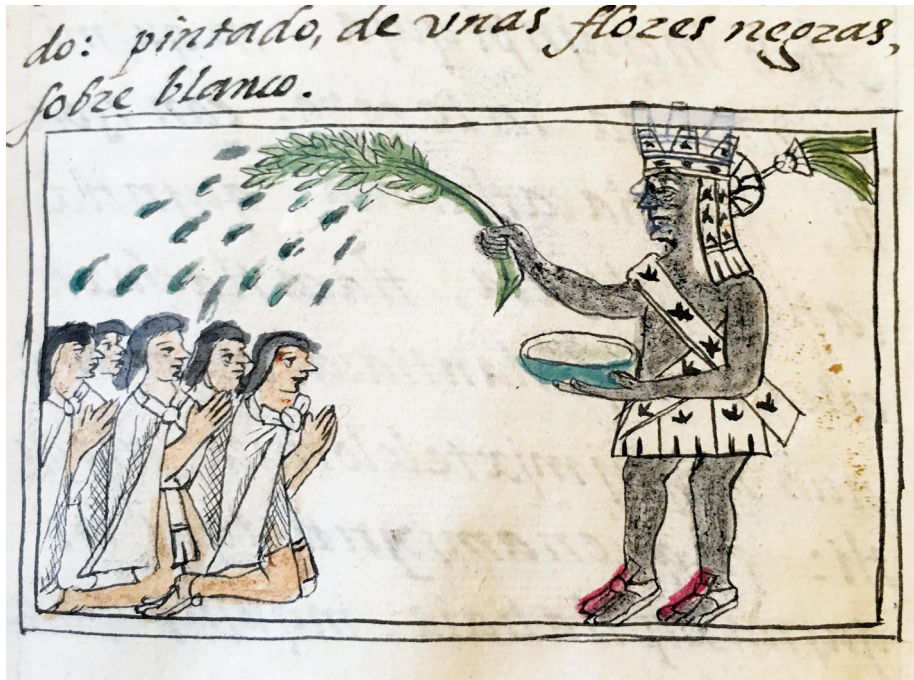 do: pintado, de vnas flores negras,
sobre blanco.